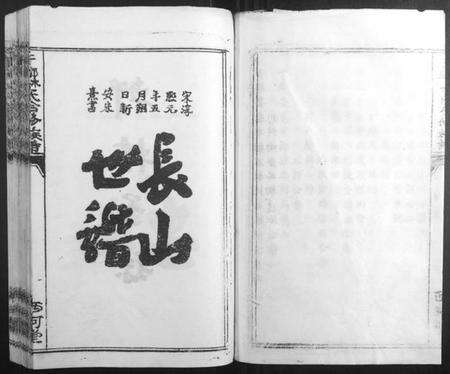 宋淳
熙元
年五
月朔
日新
安朱
熹書
長山
世譜
西河堂